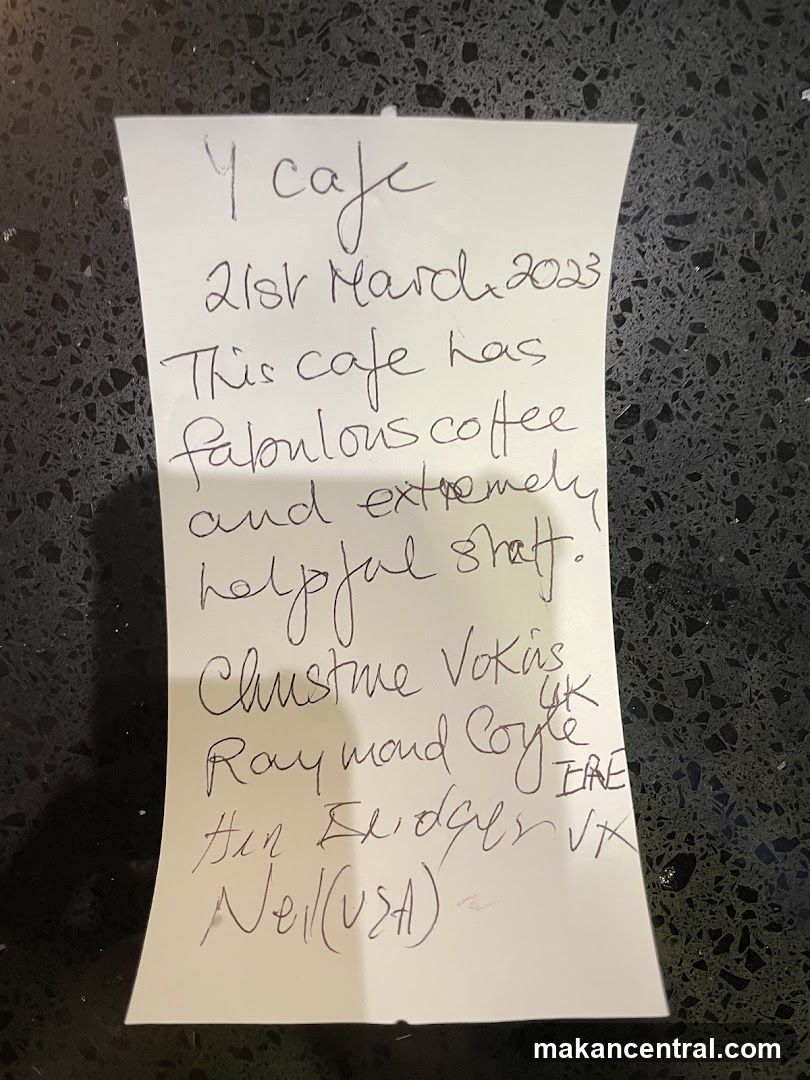 Y cafe
21st March 2023
This cafe has
fabulous coffee
and extremely
helpful staff.
Christine Vokins
UK
Raymond Coyle
IRE
UK
Neil (USA)
makancentral.com